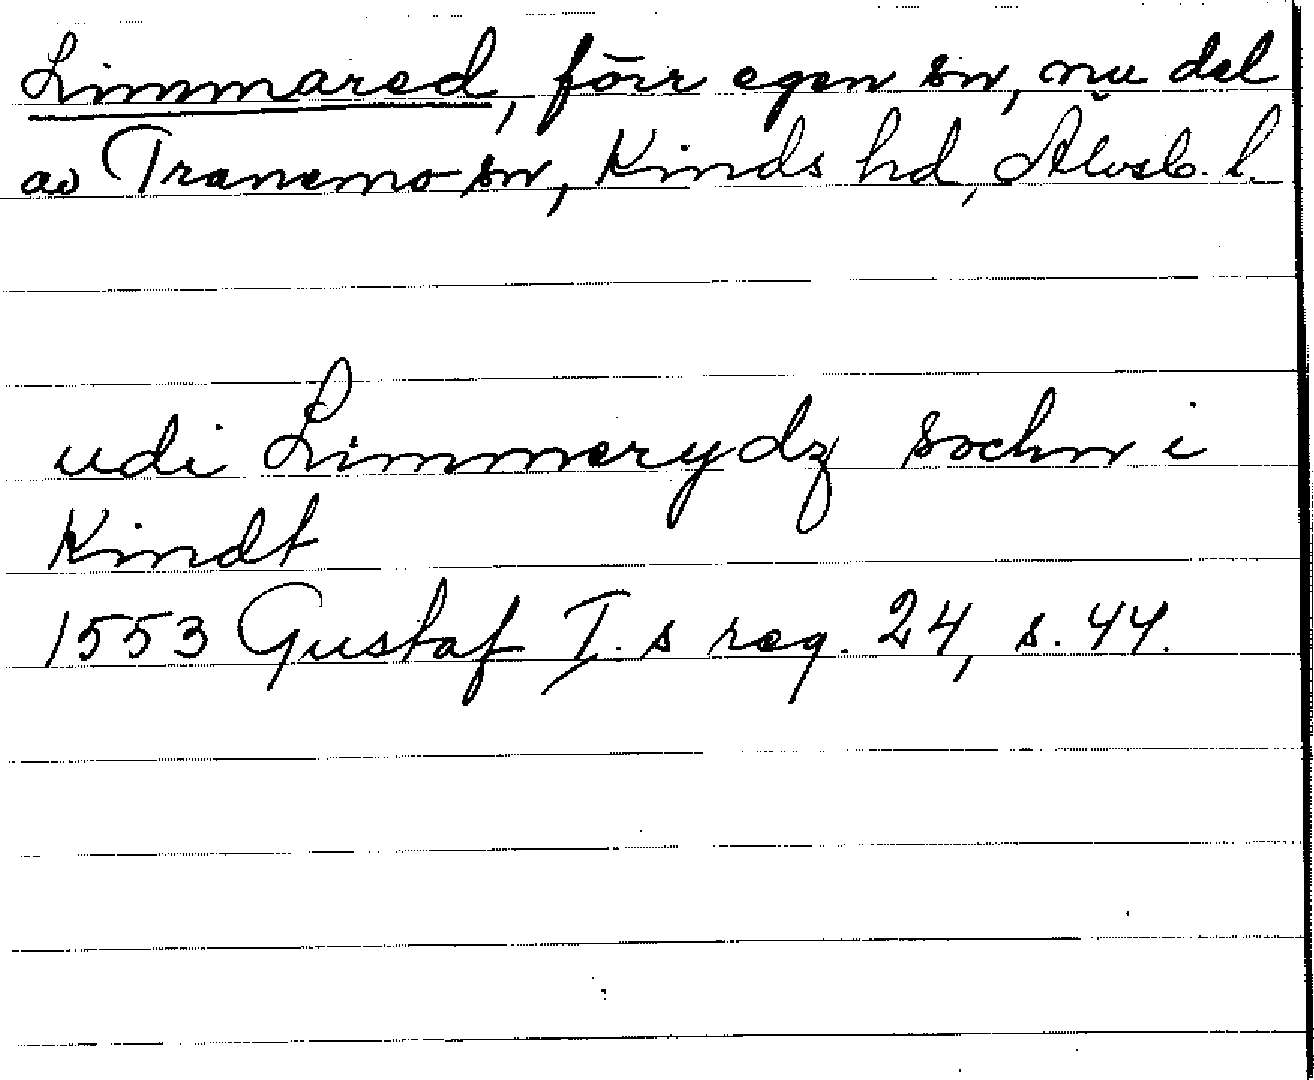 Limmared, förr egen sn, nu del
av Tranemo sn, Kinds hd, Älvsb. l.
udi Limmerydz sochn i
Kindt
1553 Gustaf I.s reg. 24, s. 44.